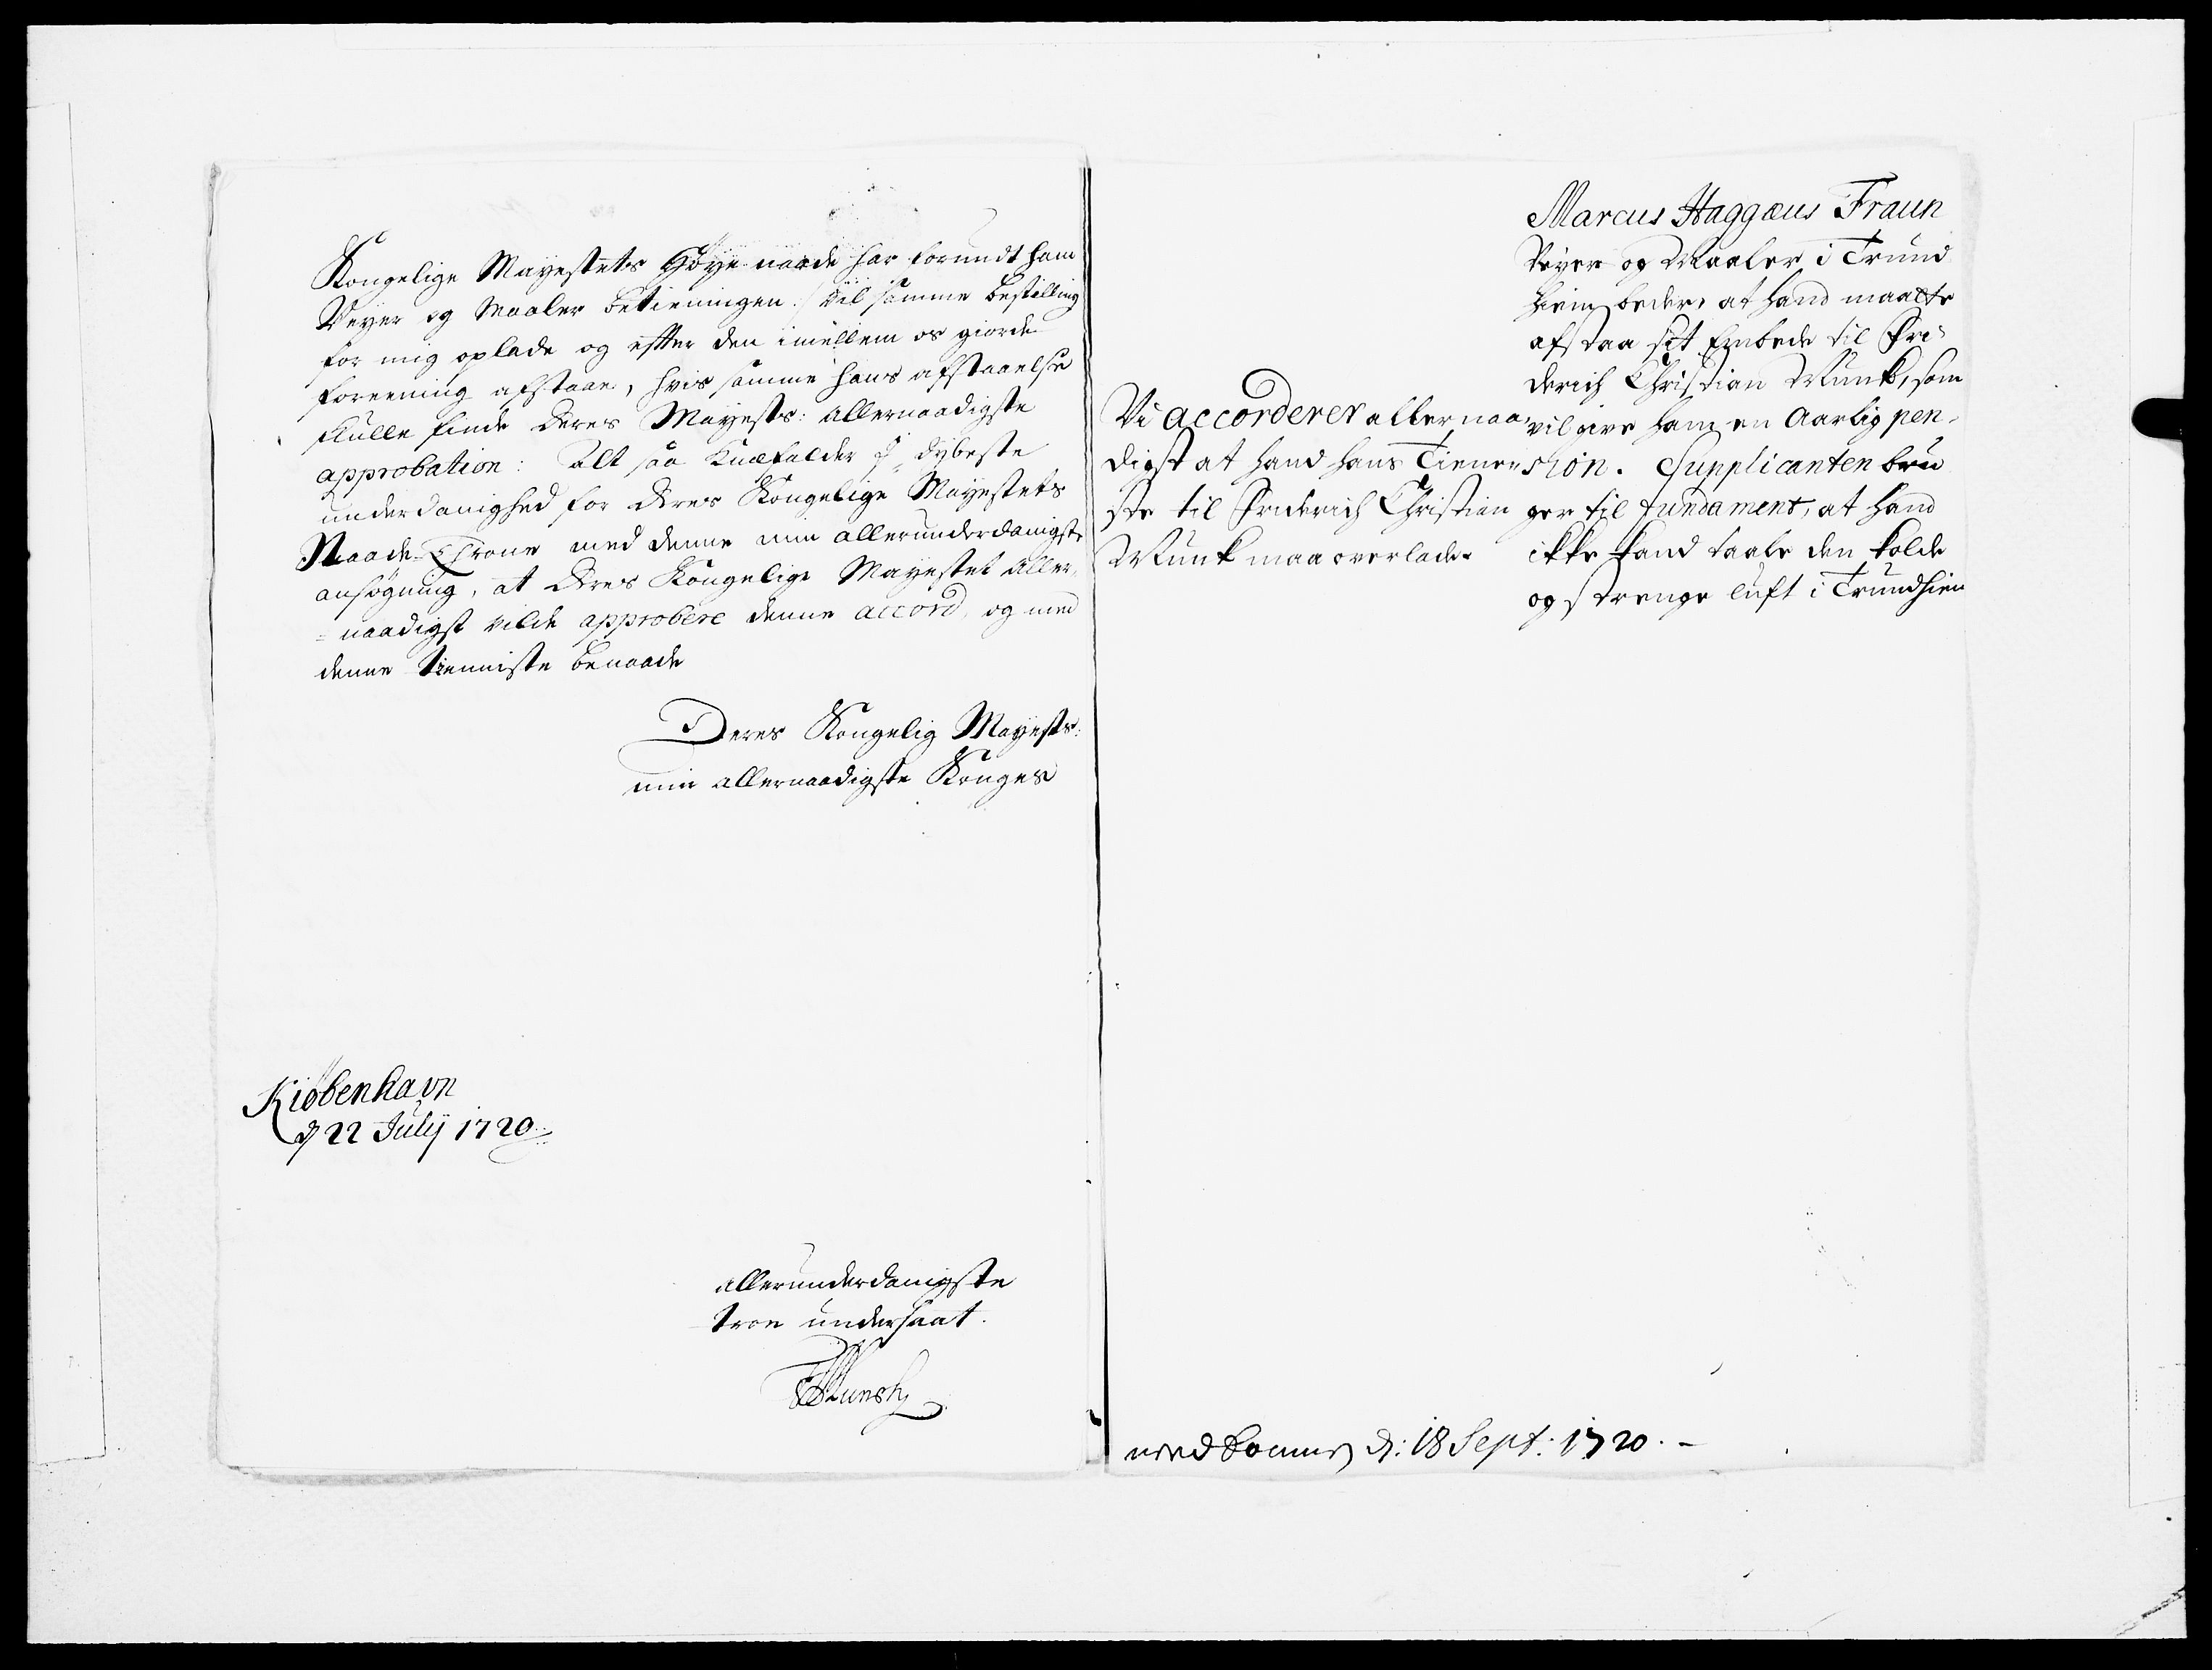 Kongelige Mayestets Høye naade har forundt ham
Veyer og Maaler betieningen: vil samme bestilling
for mig oplade og effter den imellem os giorde
foreening afstaae, hvis samme hans afstaaelse
skulle finde deres Mayests: allernaadigste
approbation: Alt saa Knæfalder i dybeste
underdanighed for deres Kongelige Mayestets
Naade-Throne med denne min allerunderdanigste
ansøgning, at deres Kongelige Mayestet aller-
=naadigst vilde approbere denne accord, og med
denne tienniste benaade
Deres Kongelig Mayests:
min allernaadigste Konges
Kiøbenhavn
d 22 Julij 1720
allerunderdanigste
troe undersaat.
Munch
Marcus Haggæus Fraun
Veyer og Maaler i Trund
hiem beder, at hand maatte
afstaa sit Embede til Fri-
derich Christian Munk, som
vil give ham en Aarlig pen-
sion. Supplicanten bru
ger til fundament, at hand
ikke kand taale den kolde
og strenge luft i Trundhiem
Vi accorderer allernaa-
digst at hand hans Tiene-
ste til Friderich Christian
Munk maa overlade.
nedkommen d: 18 Sept: 1720. -